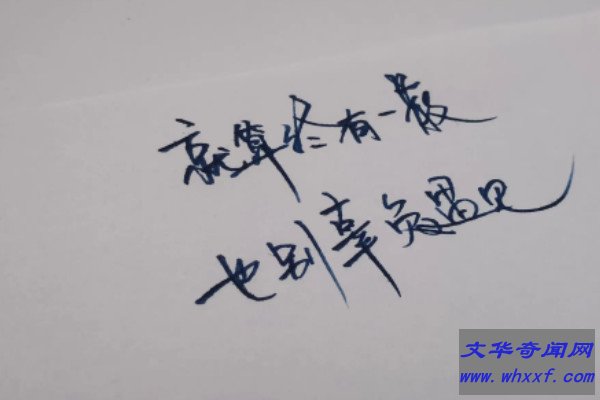 就算终有一散
也别辜负遇见
文华奇闻网
www.whxxf.com